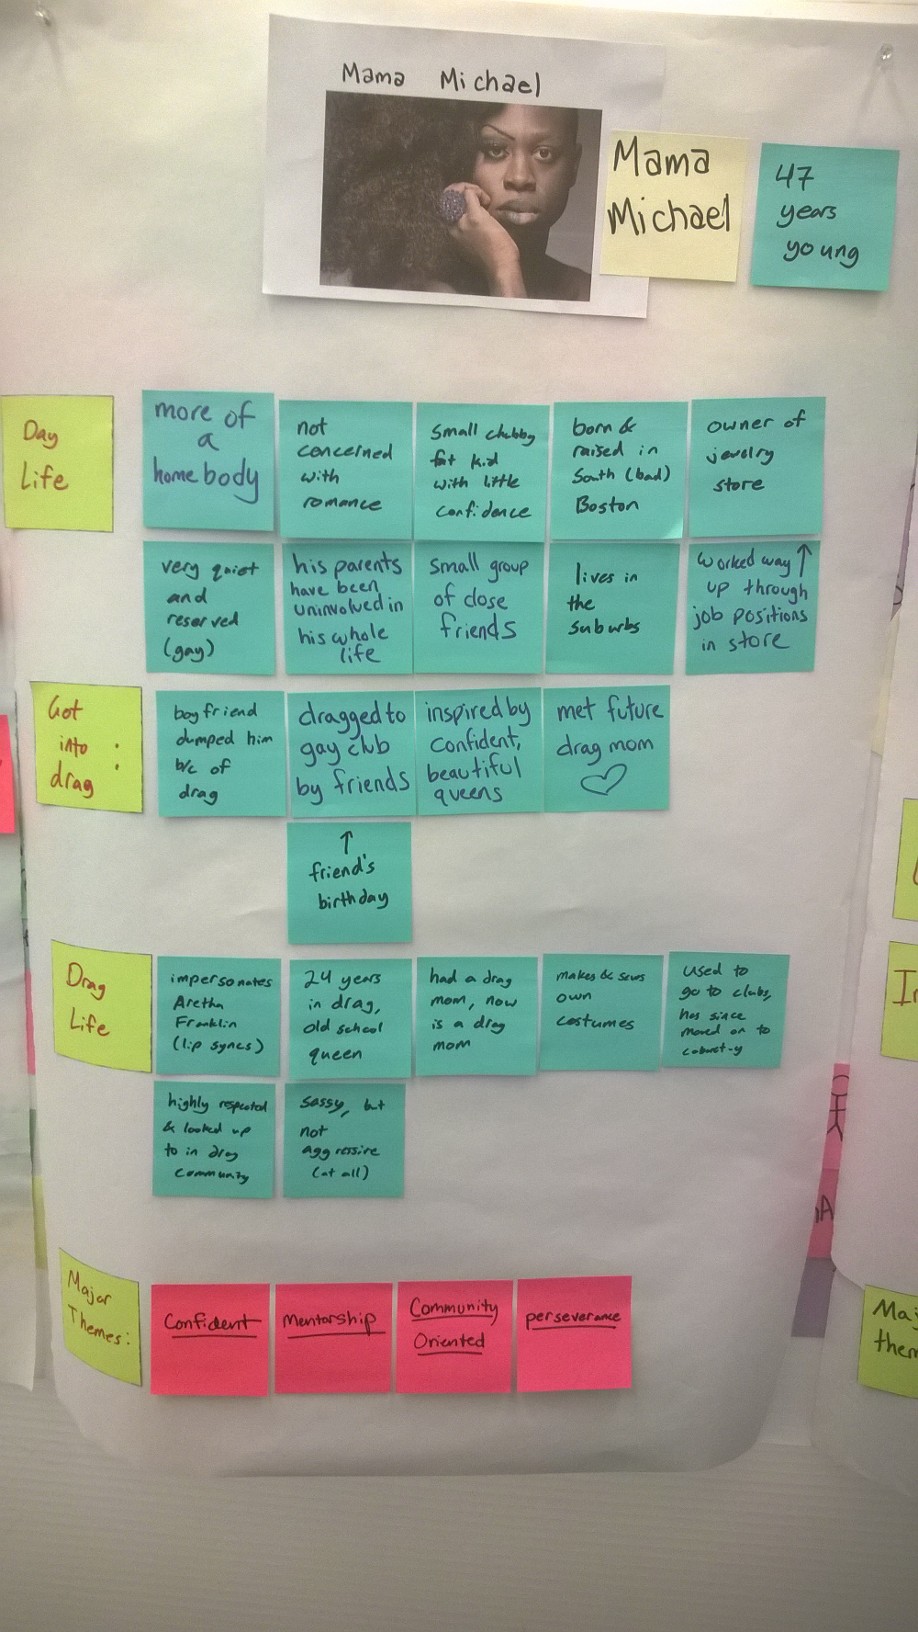 Mama Michael
Mama
Michael
47
years
young
Day
Life
more of
a
homebody
not
concerned
with
romance
Small chubby
fat kid
with little
confidence
born &
raised in
South (bad)
Boston
owner of
jewelry
store
very quiet
and
reserved
(gay)
his parents
have been
uninvolved in
his whole
life
small group
of close
friends
lives in
the
suburbs
worked way ↑
up through
job positions
in store
Got
into :
drag
boyfriend
dumped him
b/c of
drag
dragged to
gay club
by friends
inspired by
confident,
beautiful
queens
met future
drag mom
♡
↑
friend's
birthday
Drag
Life
impersonates
Aretha
Franklin
(lip syncs)
24 years
in drag,
old school
queen
had a drag
mom, now
is a drag
mom
makes & sews
own
costumes
used to
go to clubs,
has since
moved on to
cabaret-y
highly respected
& looked up
to in drag
community
Sassy, but
not
aggressive
(at all)
Major
Themes:
Confident
Mentorship
Community
Oriented
perseverance